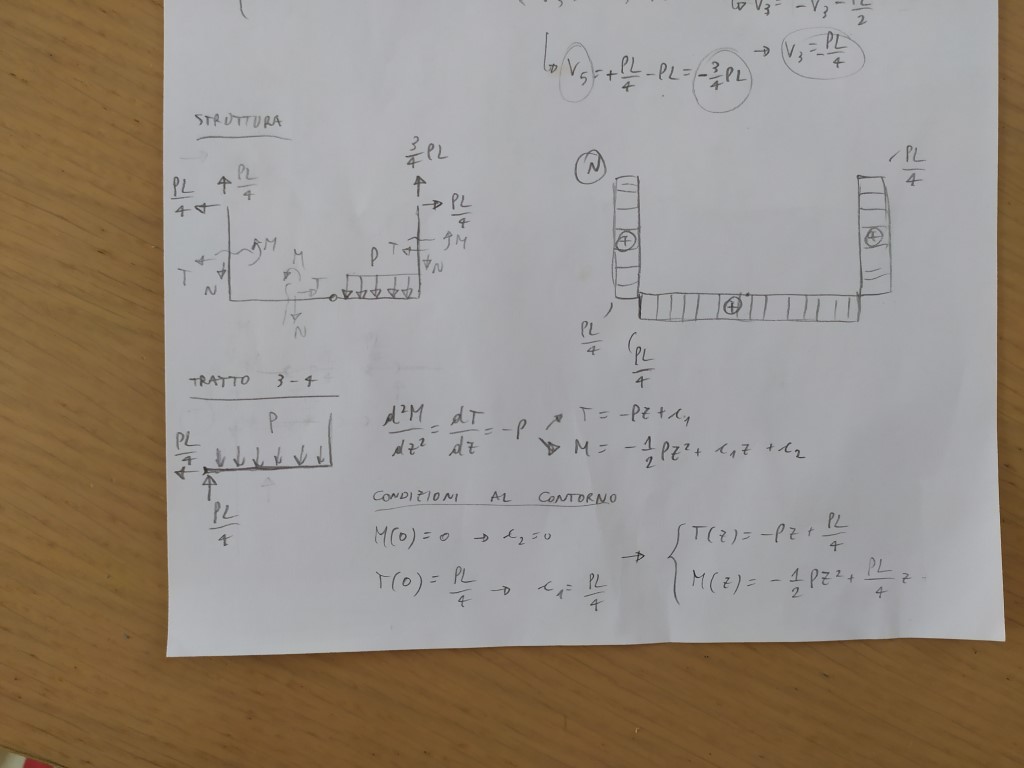 V₅ = + PL/4 - PL = -3/4 PL → V₃ = -PL/4
STRUTTURA
PL/4 PL/4 3/4 PL PL/4
T M N
M T N
P T M N
N
PL/4 PL/4 PL/4
+ + +
TRATTO 3-4
P
PL/4
PL/4
d²M/dz² = dT/dz = -P → T = -Pz + c₁
→ M = -1/2 Pz² + c₁z + c₂
CONDIZIONI AL CONTORNO
M(0) = 0 → c₂ = 0
T(0) = PL/4 → c₁ = PL/4 →
{ T(z) = -Pz + PL/4
M(z) = -1/2 Pz² + PL/4 z